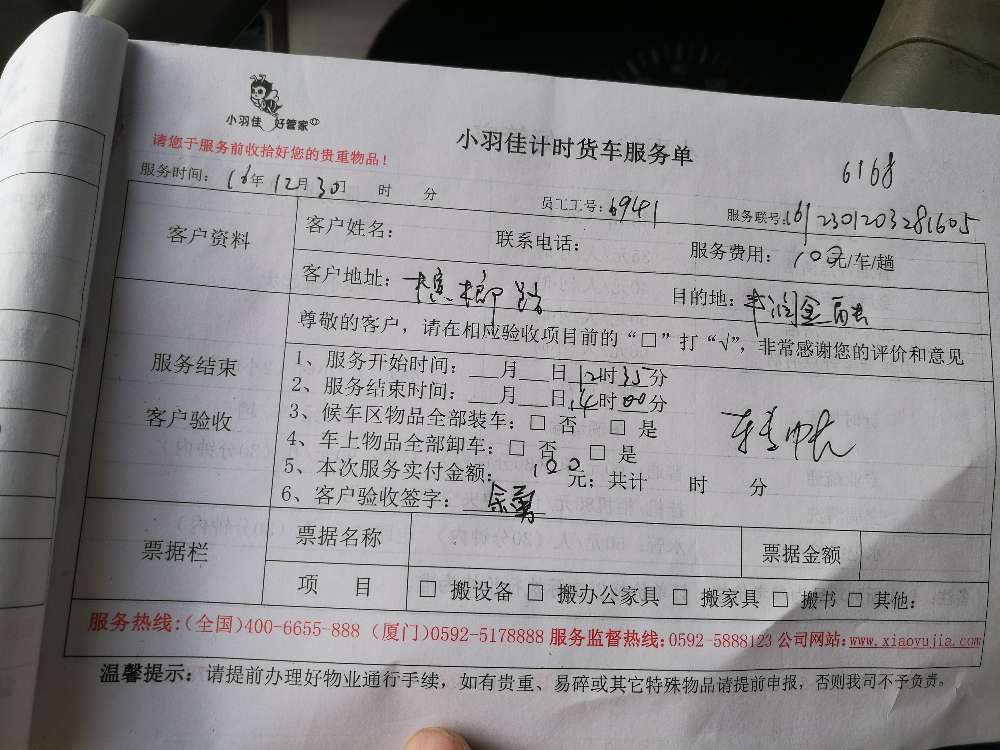 小羽佳 好管家
小羽佳计时货车服务单
6168
请您于服务前收拾好您的贵重物品！
服务时间：16年12月30日 时 分 员工工号：6941 服务联号：161230120328 1605
客户资料
客户姓名： 联系电话： 服务费用：100元/车/趟
客户地址：槟榔路 目的地：
尊敬的客户，请在相应验收项目前的“□”打“√”，非常感谢您的评价和意见
服务结束
客户验收
1、服务开始时间：__月__日12时35分
2、服务结束时间：__月__日14时00分
3、候车区物品全部装车：□ 否 □ 是
4、车上物品全部卸车：□ 否 □ 是
5、本次服务实付金额：100元；共计 时 分
6、客户验收签字：余勇
票据栏
票据名称 票据金额
项 目 □ 搬设备 □ 搬办公家具 □ 搬家具 □ 搬书 □ 其他：
服务热线:(全国)400-6655-888 (厦门)0592-5178888 服务监督热线:0592-5888123 公司网站:www.xiaoyujia.com
温馨提示：请提前办理好物业通行手续，如有贵重、易碎或其它特殊物品请提前申报，否则我司不予负责。